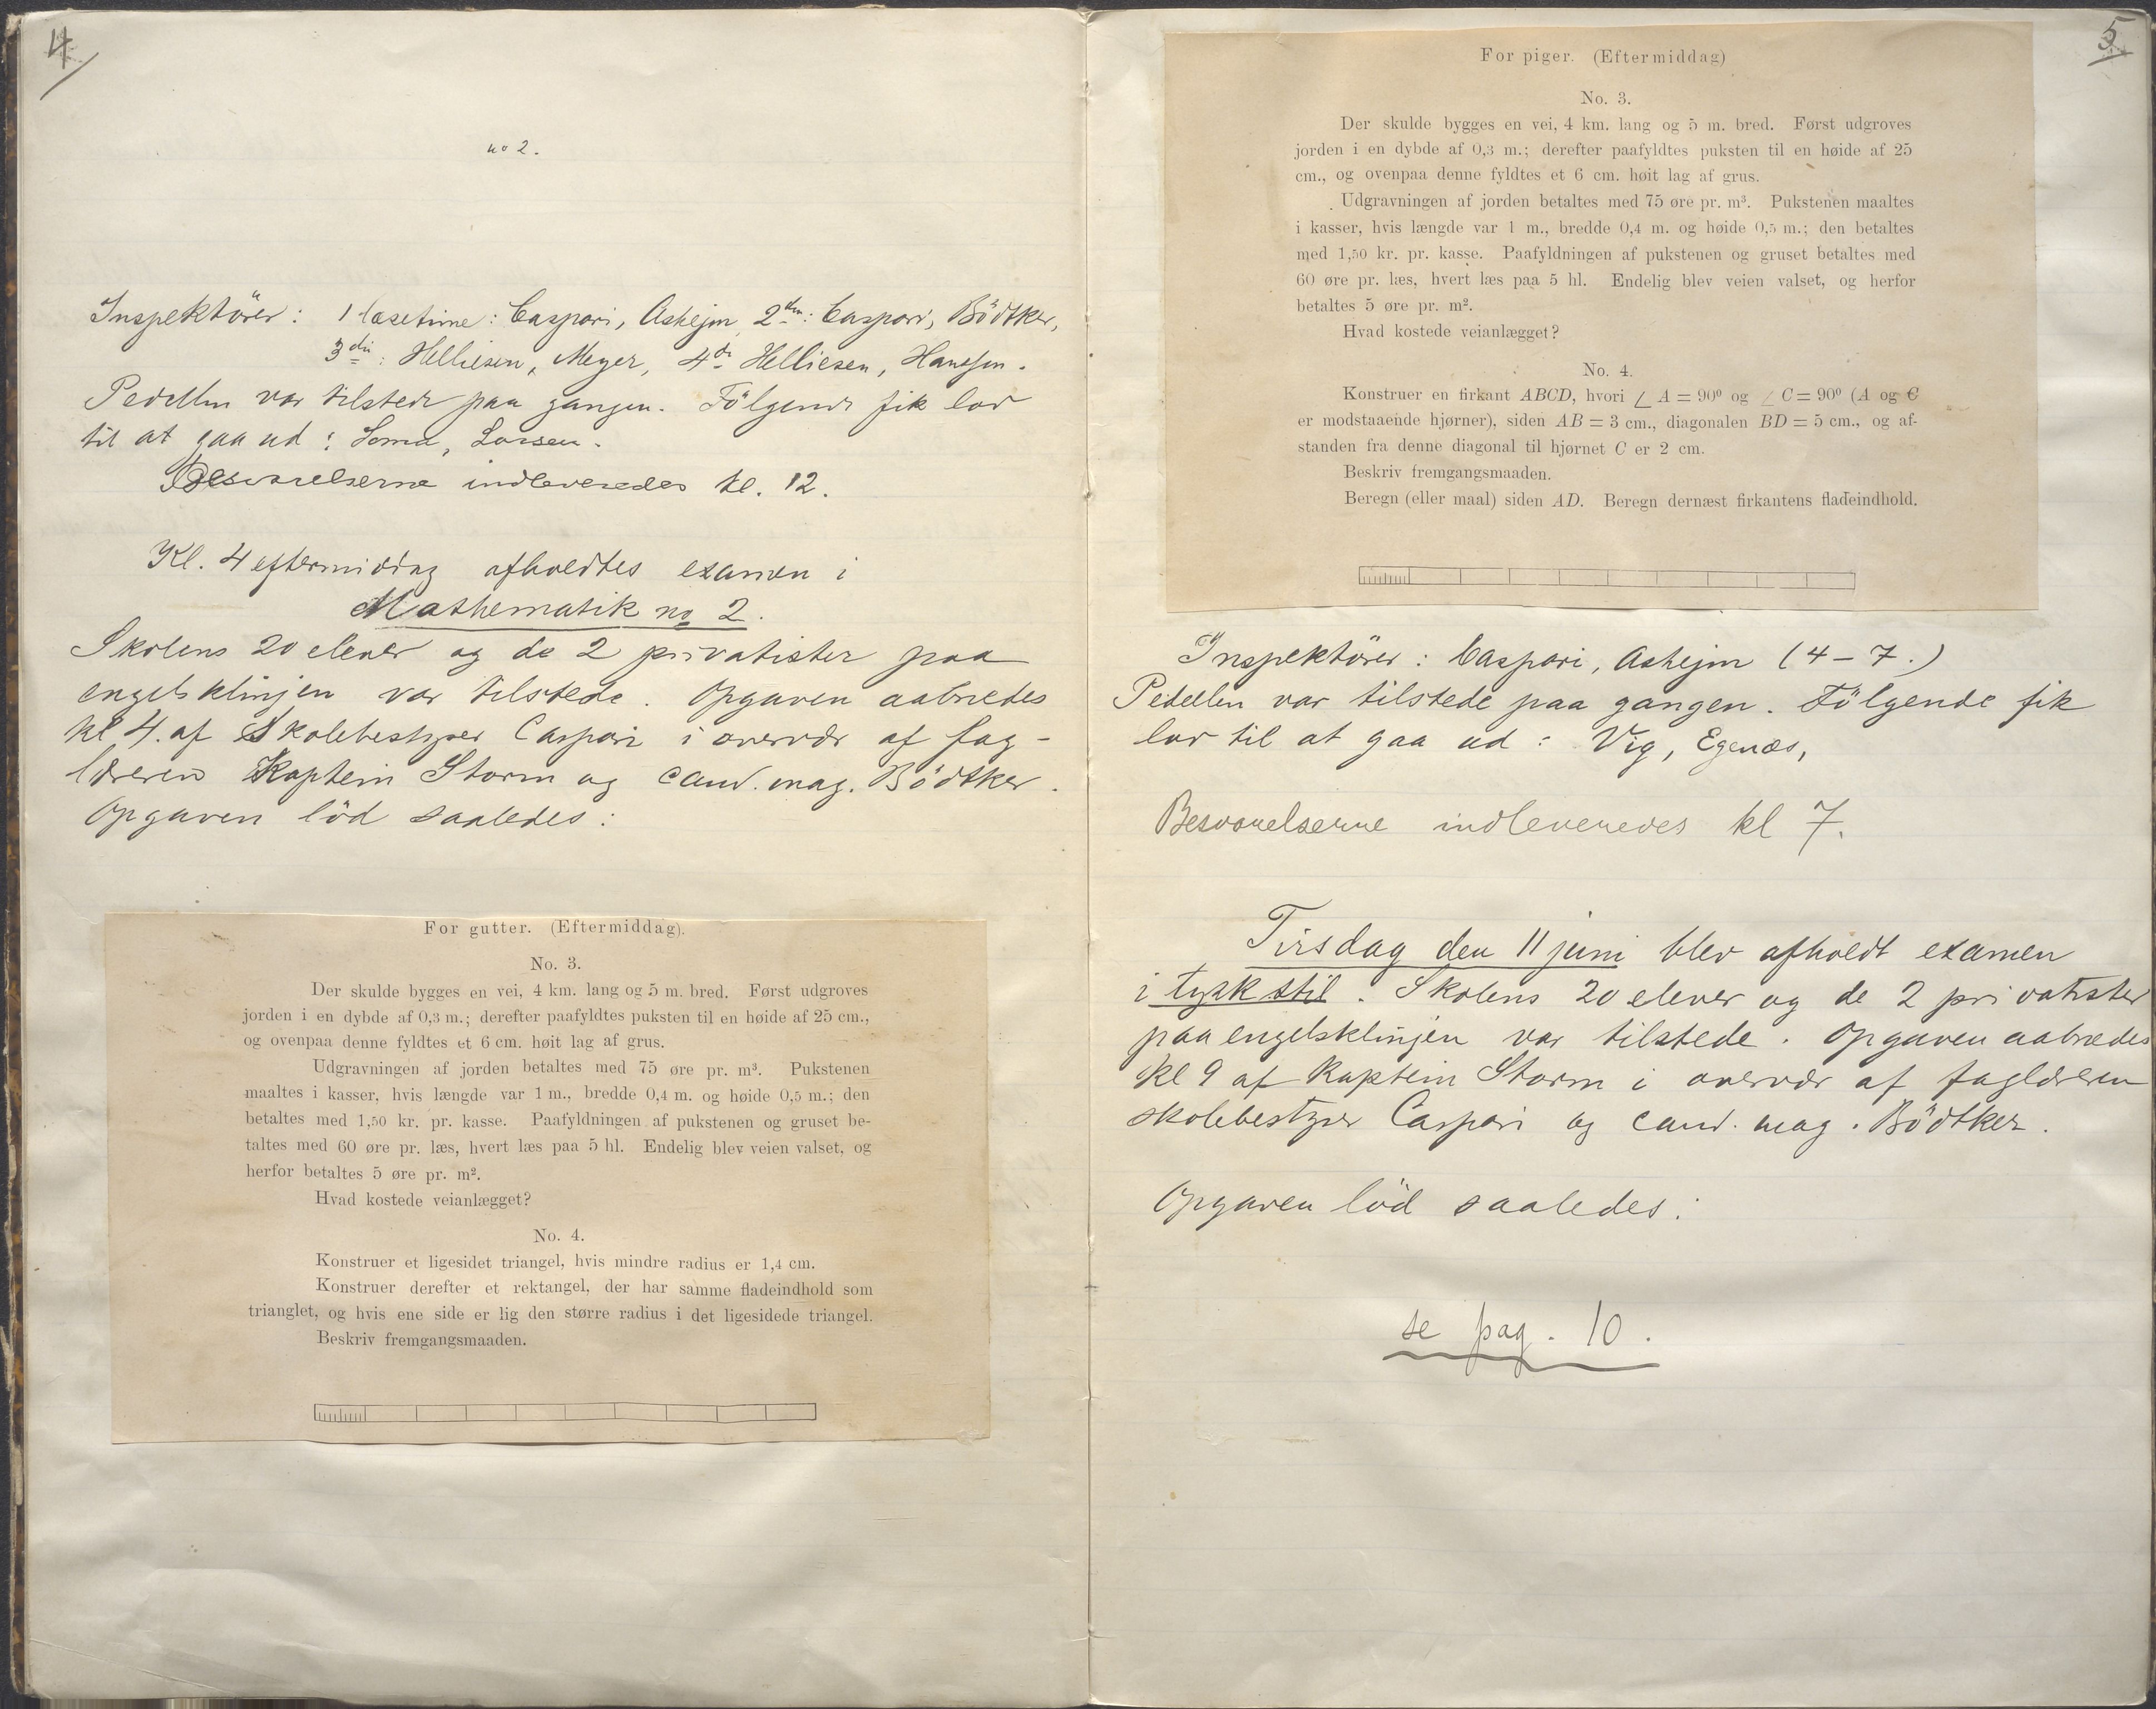 4
no 2.
Inspektörer: 1 læsetime: Caspari, Askejm, 2den: Caspari, Bödtker,
3die: Helliesen, Meyer, 4de Helliesen, Hanssen.
Pedellen var tilstede paa gangen. Fölgende fik lov
til at gaa ud: Soma, Larsen.
Besvarelserne indleveredes kl. 12.
Kl. 4 eftermiddag afholdtes examen i
Mathematik no 2.
Skolens 20 elever og de 2 privatister paa
engelsklinjen var tilstede. Opgaven aabnedes
kl 4. af Skolebestyrer Caspari i overvær af fag-
læreren Kaptein Storm og cand. mag. Bödtker.
Opgaven löd saaledes:
For gutter. (Eftermiddag).
No. 3.
Der skulde bygges en vei, 4 km. lang og 5 m. bred. Først udgroves
jorden i en dybde af 0,3 m.; derefter paafyldtes puksten til en høide af 25 cm.,
og ovenpaa denne fyldtes et 6 cm. høit lag af grus.
Udgravningen af jorden betaltes med 75 øre pr. m³. Pukstenen
maaltes i kasser, hvis længde var 1 m., bredde 0,4 m. og høide 0,5 m.; den
betaltes med 1,50 kr. pr. kasse. Paafyldningen af pukstenen og gruset be-
taltes med 60 øre pr. læs, hvert læs paa 5 hl. Endelig blev veien valset, og
herfor betaltes 5 øre pr. m².
Hvad kostede veianlægget?
No. 4.
Konstruer et ligesidet triangel, hvis mindre radius er 1,4 cm.
Konstruer derefter et rektangel, der har samme fladeindhold som
trianglet, og hvis ene side er lig den større radius i det ligesidede triangel.
Beskriv fremgangsmaaden.
5
For piger. (Eftermiddag)
No. 3.
Der skulde bygges en vei, 4 km. lang og 5 m. bred. Først udgroves
jorden i en dybde af 0,3 m.; derefter paafyldtes puksten til en høide af 25
cm., og ovenpaa denne fyldtes et 6 cm. høit lag af grus.
Udgravningen af jorden betaltes med 75 øre pr. m³. Pukstenen maaltes
i kasser, hvis længde var 1 m., bredde 0,4 m. og høide 0,5 m.; den betaltes
med 1,50 kr. pr. kasse. Paafyldningen af pukstenen og gruset betaltes med
60 øre pr. læs, hvert læs paa 5 hl. Endelig blev veien valset, og herfor
betaltes 5 øre pr. m².
Hvad kostede veianlægget?
No. 4.
Konstruer en firkant ABCD, hvori ∠ A = 90⁰ og ∠ C = 90⁰ (A og C
er modstaaende hjørner), siden AB = 3 cm., diagonalen BD = 5 cm., og af-
standen fra denne diagonal til hjørnet C er 2 cm.
Beskriv fremgangsmaaden.
Beregn (eller maal) siden AD. Beregn dernæst firkantens fladeindhold.
Inspektörer: Caspari, Askejm (4-7.)
Pedellen var tilstede paa gangen. Fölgende fik
lov til at gaa ud: Vig, Egenæs,
Besvarelserne indleveredes kl 7.
Tirsdag den 11 juni blev afholdt examen
i tysk stil. Skolens 20 elever og de 2 privatister
paa engelsklinjen var tilstede. Opgaven aabnedes
kl 9 af Kaptein Storm i overvær af faglæreren
skolebestyrer Caspari og cand. mag. Bödtker.
Opgaven löd saaledes:
se pag. 10.